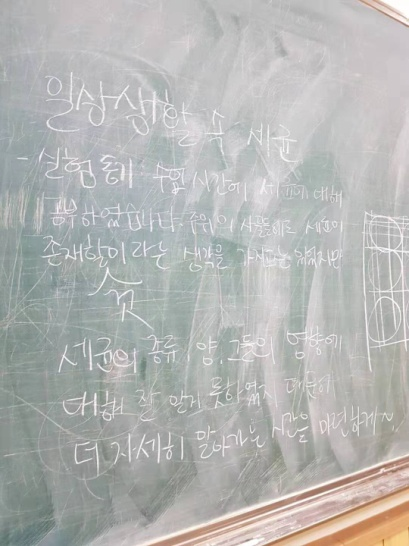 일상생활 속 세균
- 실험동기 수업 시간에 세균에 대해
공부하였습니다. 주위의 사물들에도 세균이
존재할것이라는 생각을 가지고는 있었지만
세균의 종류, 양, 그들의 영향에
대해 잘 알지 못하였기 때문에
더 자세히 알아가는 시간을 마련하게